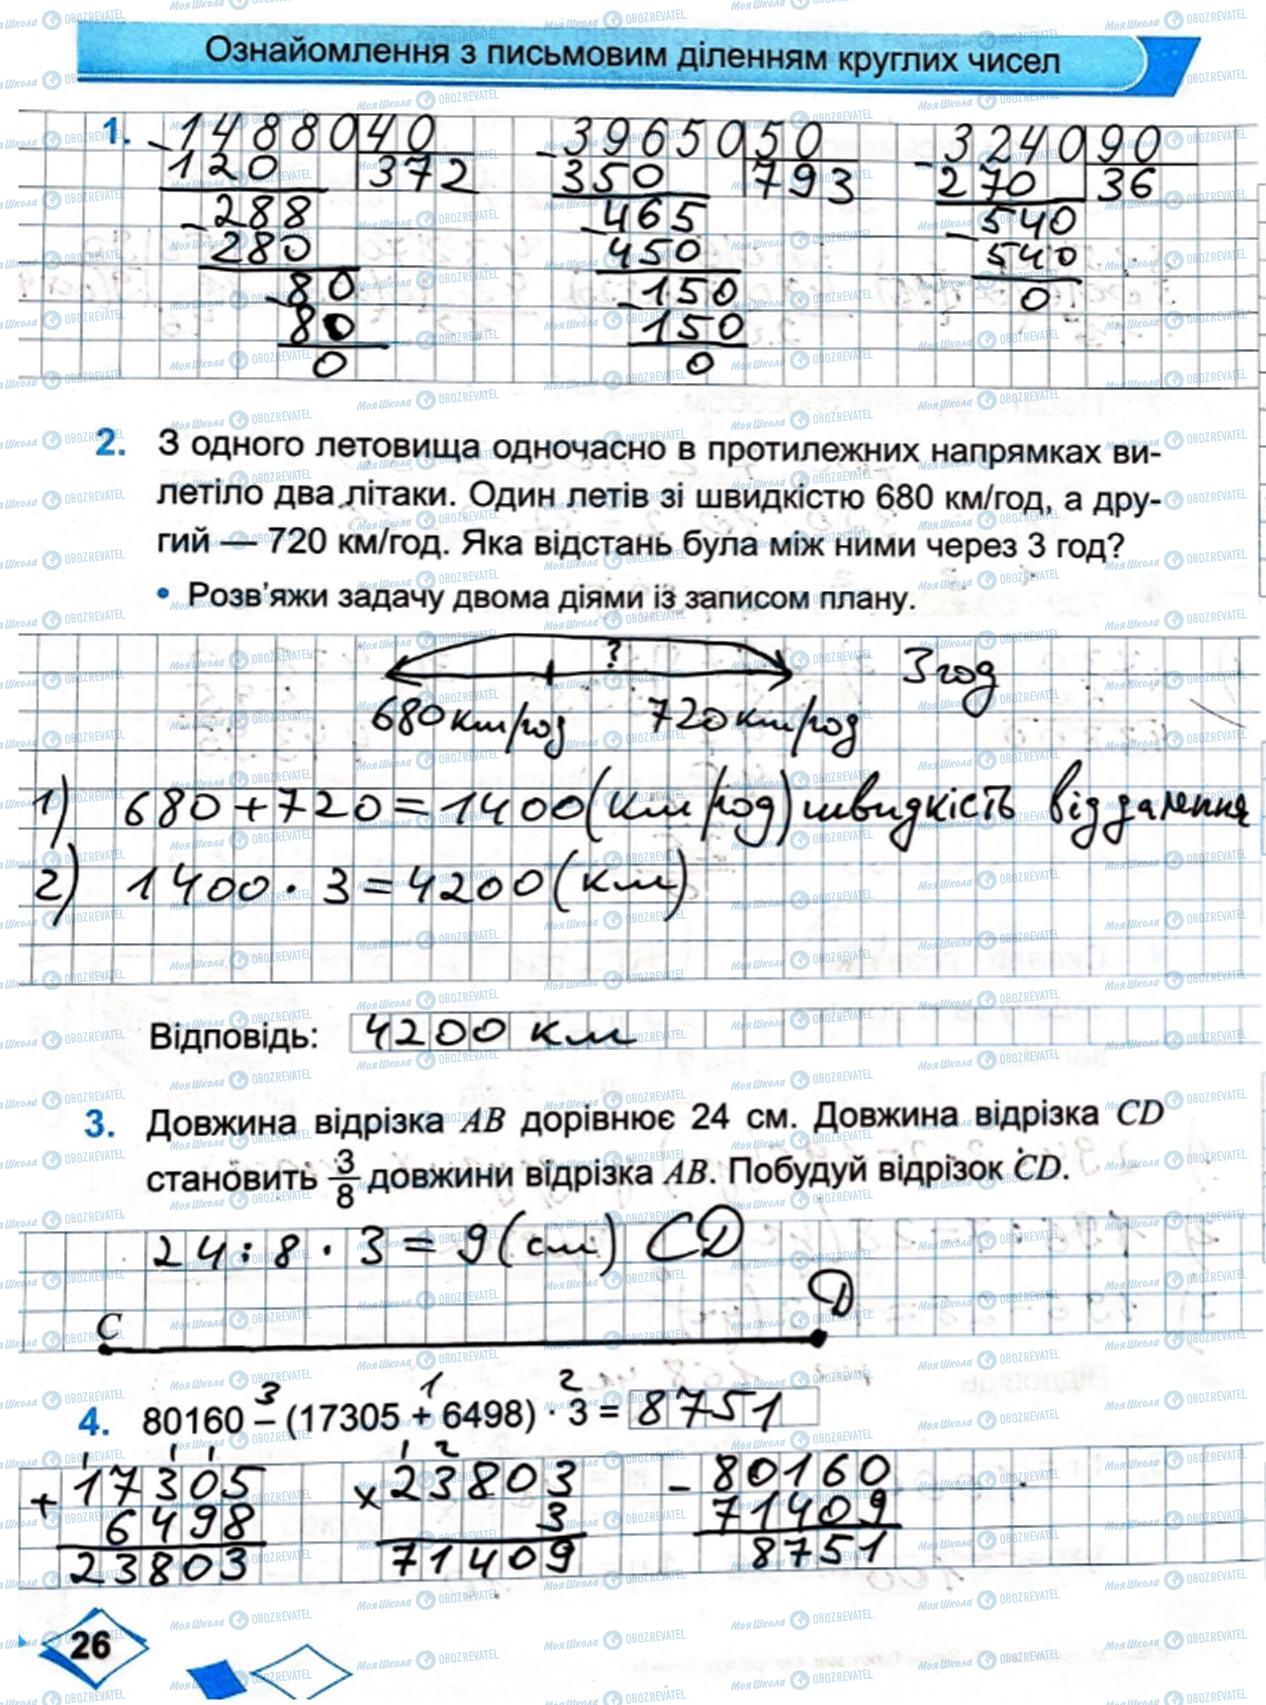 Ознайомлення з письмовим діленням круглих чисел
1. - 14880 | 40 - 39650 | 50 - 3240 | 90
120 372 350 793 270 36
- 288 - 465 - 540
280 450 540
- 80 - 150 0
80 150
0 0
2. З одного летовища одночасно в протилежних напрямках ви-
летіло два літаки. Один летів зі швидкістю 680 км/год, а дру-
гий — 720 км/год. Яка відстань була між ними через 3 год?
• Розв'яжи задачу двома діями із записом плану.
? 3 год
680 км/год 720 км/год
1) 680 + 720 = 1400 (км/год) швидкість віддалення
2) 1400 · 3 = 4200 (км)
Відповідь: 4200 км
3. Довжина відрізка AB дорівнює 24 см. Довжина відрізка CD
становить 3/8 довжини відрізка AB. Побудуй відрізок CD.
24 : 8 · 3 = 9 (см) CD
C D
3 1 2
4. 80160 – (17305 + 6498) · 3 = 8751
1 1 1 1 2
+ 17305 × 23803 - 80160
6498 3 71409
23803 71409 8751
26